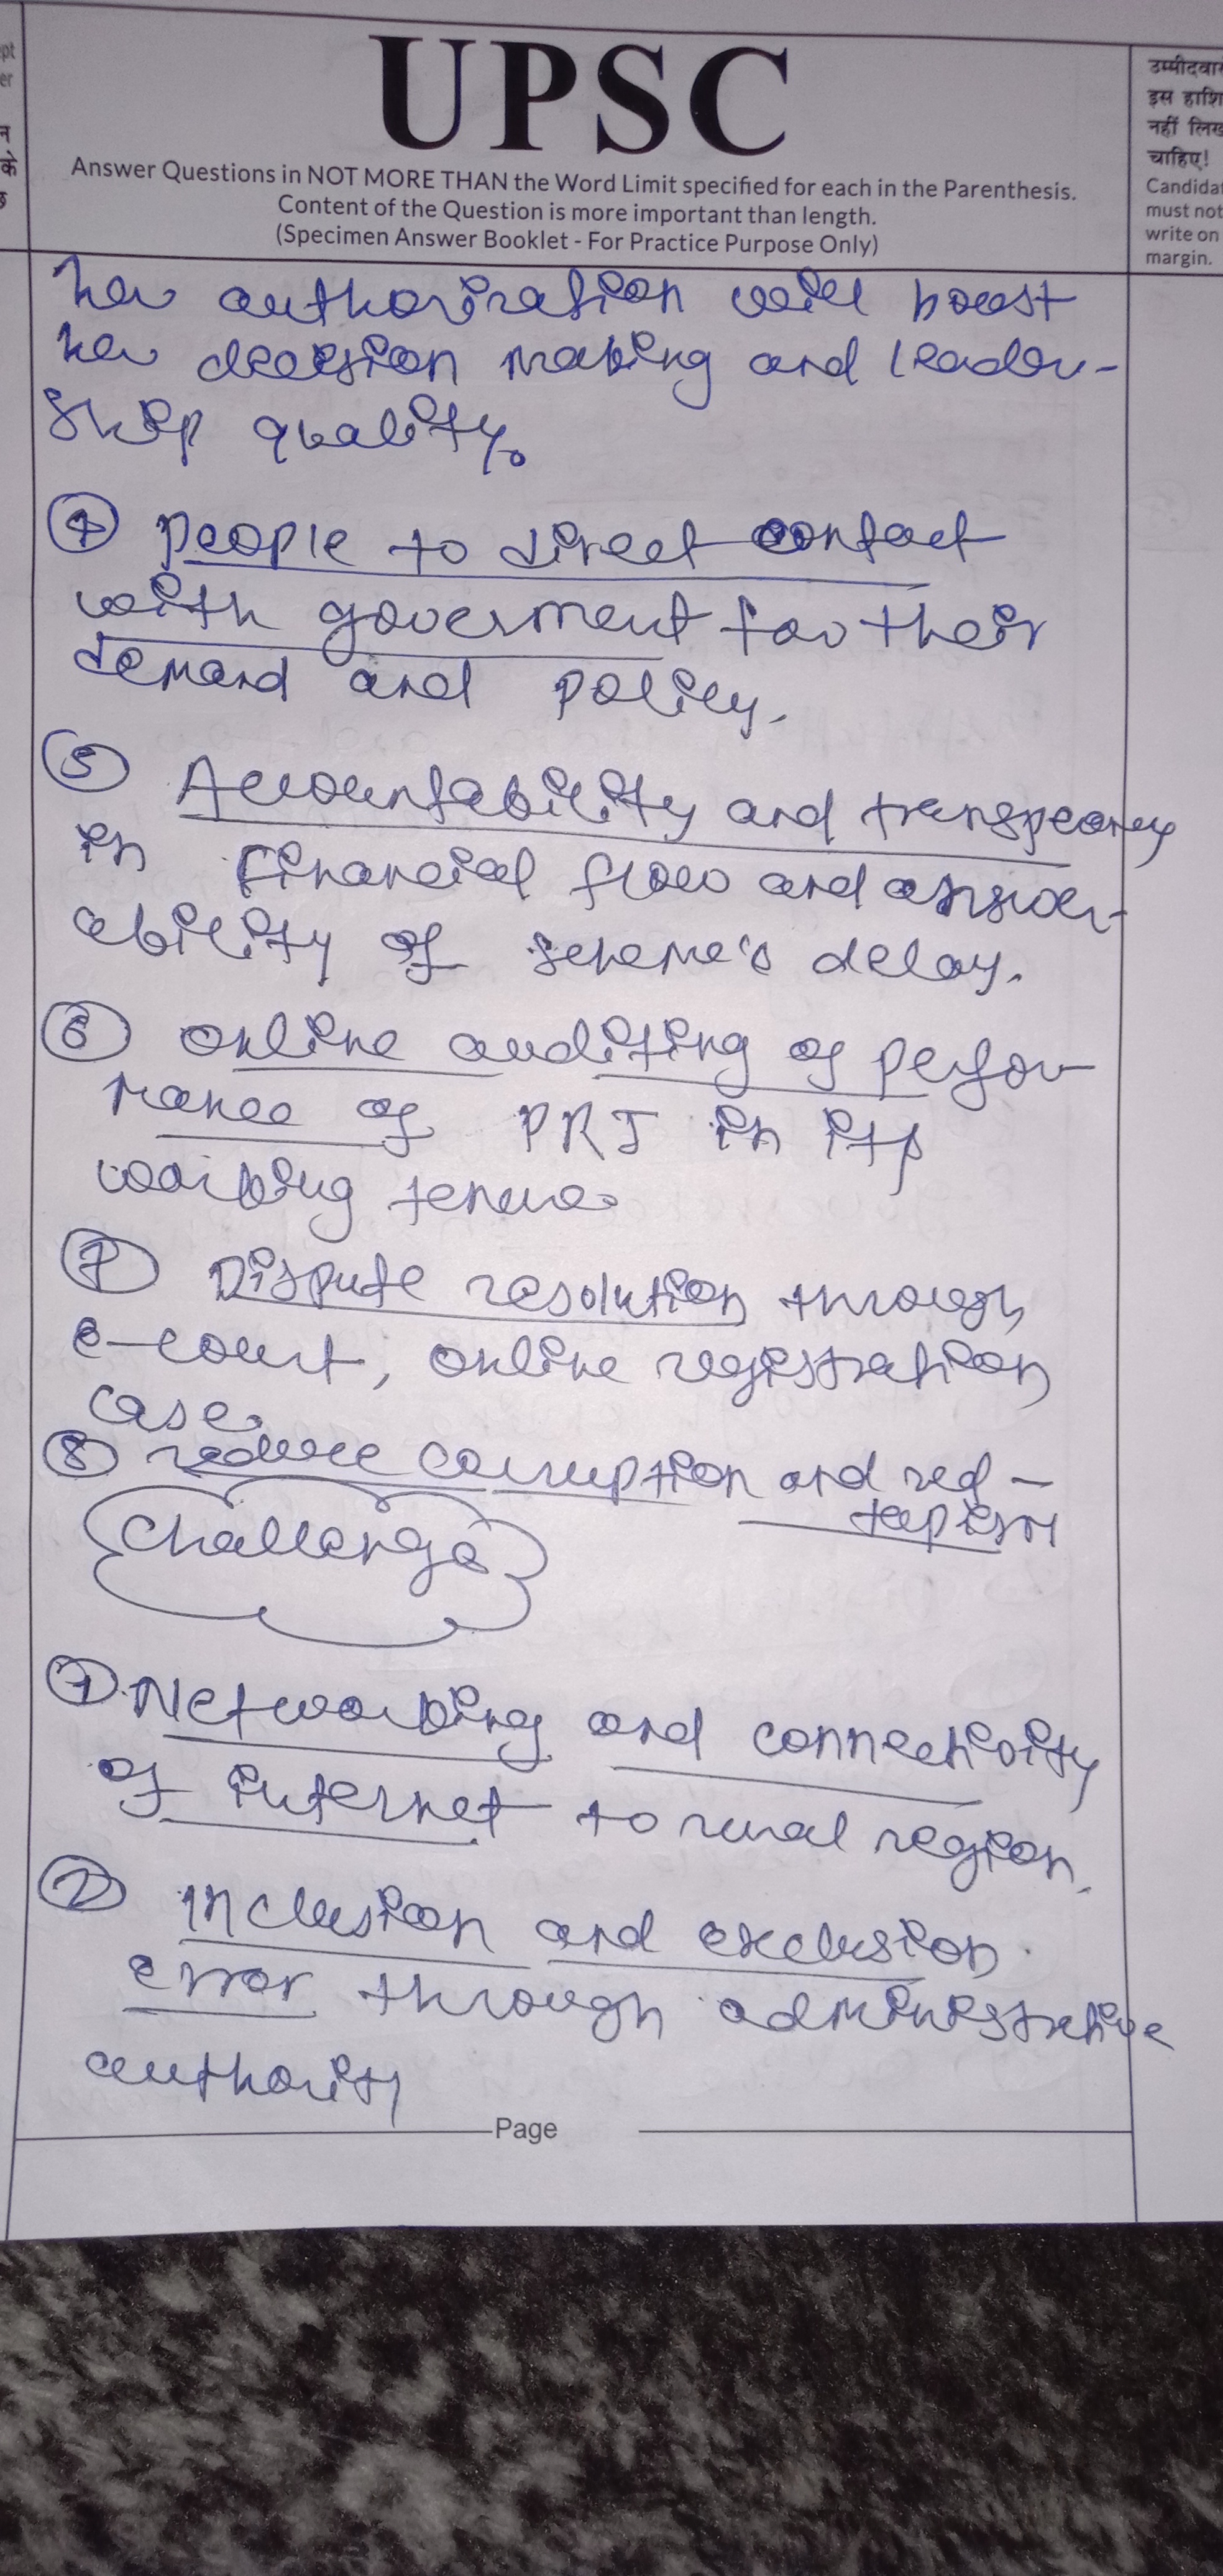 UPSC
Answer Questions in NOT MORE THAN the Word Limit specified for each in the Parenthesis.
Content of the Question is more important than length.
(Specimen Answer Booklet - For Practice Purpose Only)
उम्मीदवार
इस हाशि
नहीं लिख
चाहिए!
Candidat
must not
write on
margin.
her authorization will boost
her decision making and leader-
ship quality.
④ people to direct contact
with goverment for their
demand and policy.
⑤ Accountability and transpearncy
in financial flow and answer-
ability of scheme's delay.
⑥ online auditing of perfor
mance of PRI in its
working tenure
⑦ Dispute resolution through
e-court, online registration
case.
⑧ reduce corruption and red-
tapism
Challenge
① Networking and connectivity
of internet to rural region.
② Inclusion and exclusion
error through administrative
authority
Page